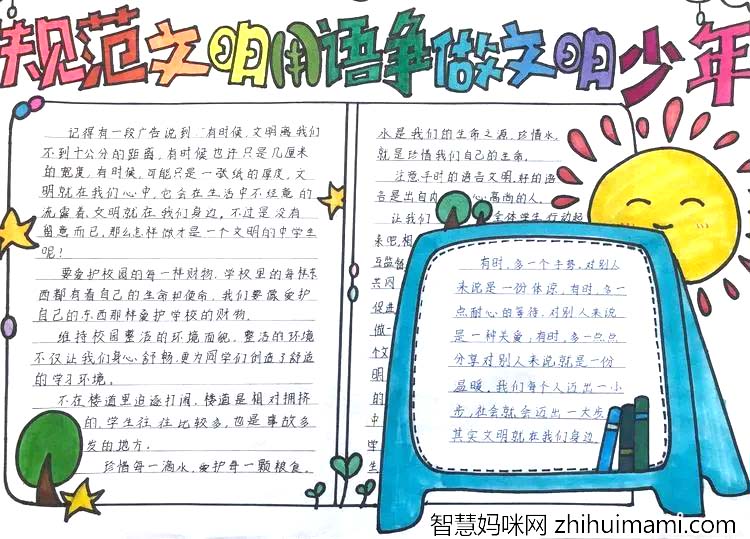 规范文明用语争做文明少年
记得有一段广告说到:有时候,文明离我们
不到十公分的距离,有时候也许只是几厘米
的宽度,有时候,可能只是一张纸的厚度,文
明就在我们心中,它会在生活中不经意的
流露着,文明就在我们身边,不过是没有
留意而已,那么怎样做才是一个文明的中学生
呢?
要爱护校园的每一样财物.学校里的每样东
西都有着自己的生命和使命,我们要像爱护
自己的东西那样爱护学校的财物.
维持校园整洁的环境面貌.整洁的环境
不仅让我们身心舒畅,更为同学们创造了舒适
的学习环境。
不在楼道里追逐打闹.楼道是相对拥挤
的,学生往往比较多,也是事故多
发的地方.
珍惜每一滴水,爱护每一颗粮食。
水是我们的生命之源,珍惜水,
就是珍惜我们自己的生命.
注意平时的语言文明,好的语
言是出自内心高尚的人.
让我们全体学生,行动起
来吧,相
互监督
共同
促进
做一
个文
明的
中
学
生
有时,多一个手势,对别人
来说是一份体谅,有时,多一
点耐心的等待,对别人来说
是一种关爱;有时,多一点点
分享对别人来说就是一份
温暖,我们每个人迈出一小
步,社会就会迈出一大步
其实文明就在我们身边
智慧妈咪网 zhihuimami.com